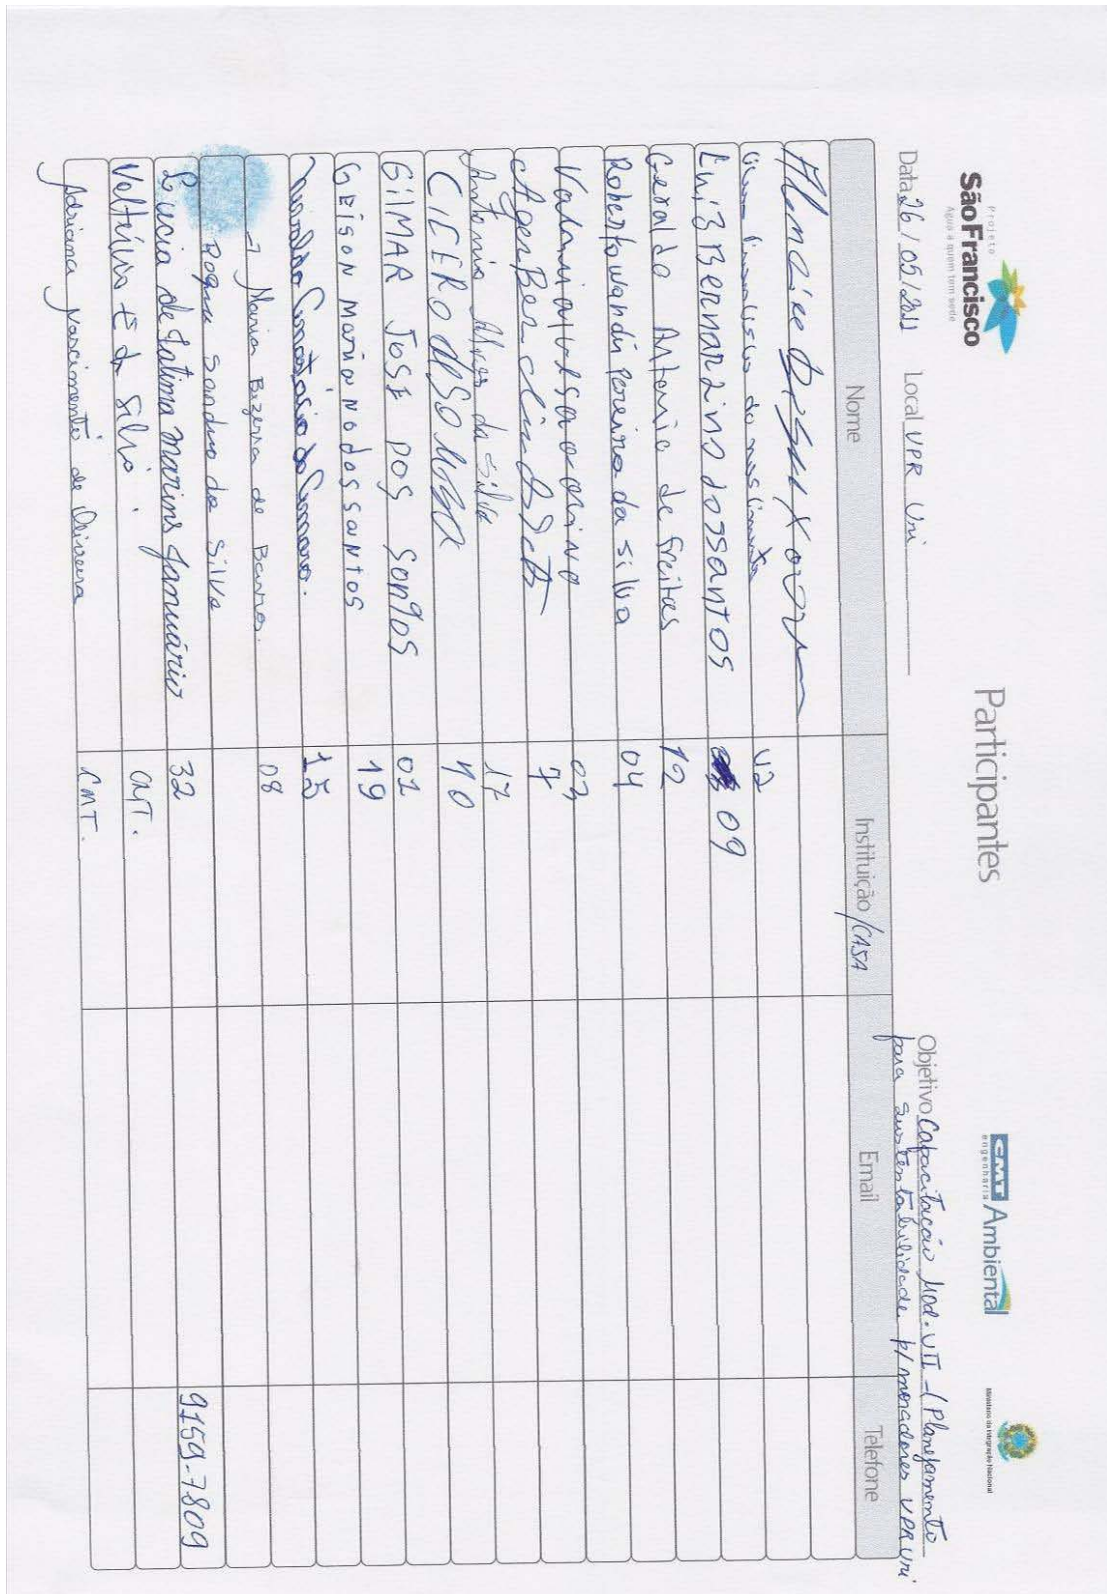 Projeto
São Francisco
Água a quem tem sede
Participantes
CMT Ambiental
engenharia
Ministério da Integração Nacional
Data 26/05/2011 Local VPR Uri
Objetivo Capacitação Mod. VII - (Planejamento
para sustentabilidade p/ moradores VPR Uri
Nome Instituição /CASA Email Telefone
do nascimento
Luiz Bernardino dos santos 09
Geraldo Antonio de freitas 12
Roberto wandi Pereira da silva 04
03
7
Antonio Alves da Silva 17
CICERO 10
GILMAR JOSE DOS SANTOS 01
GEISON Mariano dos santos 19
15
Maria Bizerra de Barros. 08
Sandro da Silva
Lucia de Fatima Marins Januário 32 9159-7809
CMT.
Adriana nascimento de Oliveira CMT.